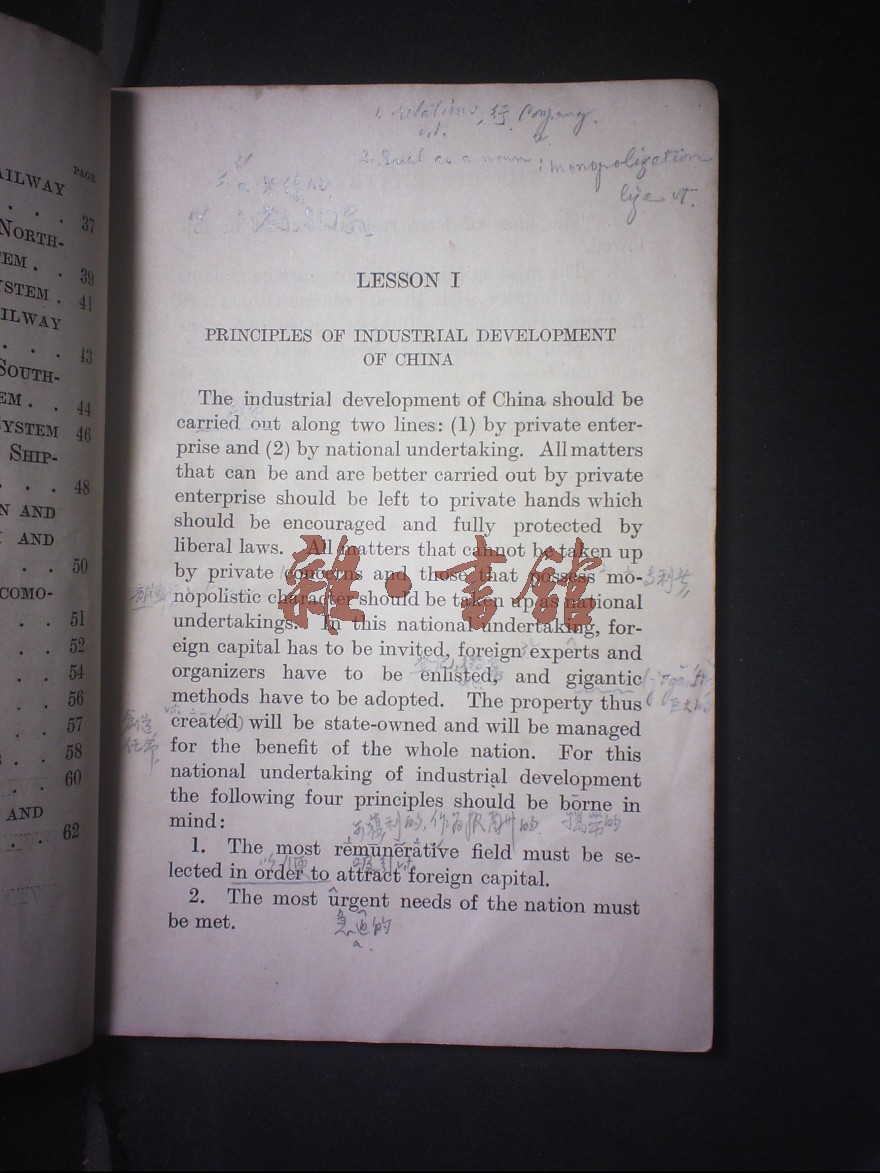 PAGE
AILWAY
. . . . 37
NORTH-
EM . . 39
YSTEM . 41
AILWAY
. . . 43
SOUTH-
EM . . 44
YSTEM 46
SHIP-
. . . 48
N AND
AND
. . 50
COMO-
. . 51
. . 52
. . 54
. . 56
. . 57
. . 58
. . 60
AND
. . 62
1. relations, 行 Company.
v.t.
2. Used as a noun: monopolization
lize vt.
LESSON I
PRINCIPLES OF INDUSTRIAL DEVELOPMENT
OF CHINA
The industrial development of China should be
carried out along two lines: (1) by private enter-
prise and (2) by national undertaking. All matters
that can be and are better carried out by private
enterprise should be left to private hands which
should be encouraged and fully protected by
liberal laws. All matters that cannot be taken up
by private concerns and those that possess mo-
nopolistic character should be taken up as national
undertakings. In this national undertaking, for-
eign capital has to be invited, foreign experts and
organizers have to be enlisted, and gigantic
methods have to be adopted. The property thus
created will be state-owned and will be managed
for the benefit of the whole nation. For this
national undertaking of industrial development
the following four principles should be borne in
mind:
有穫利的, 作为报酬的 携帶的
1. The most remunerative field must be se-
lected in order to attract foreign capital.
2. The most urgent needs of the nation must
be met.
急迫的
a.
雜·書館